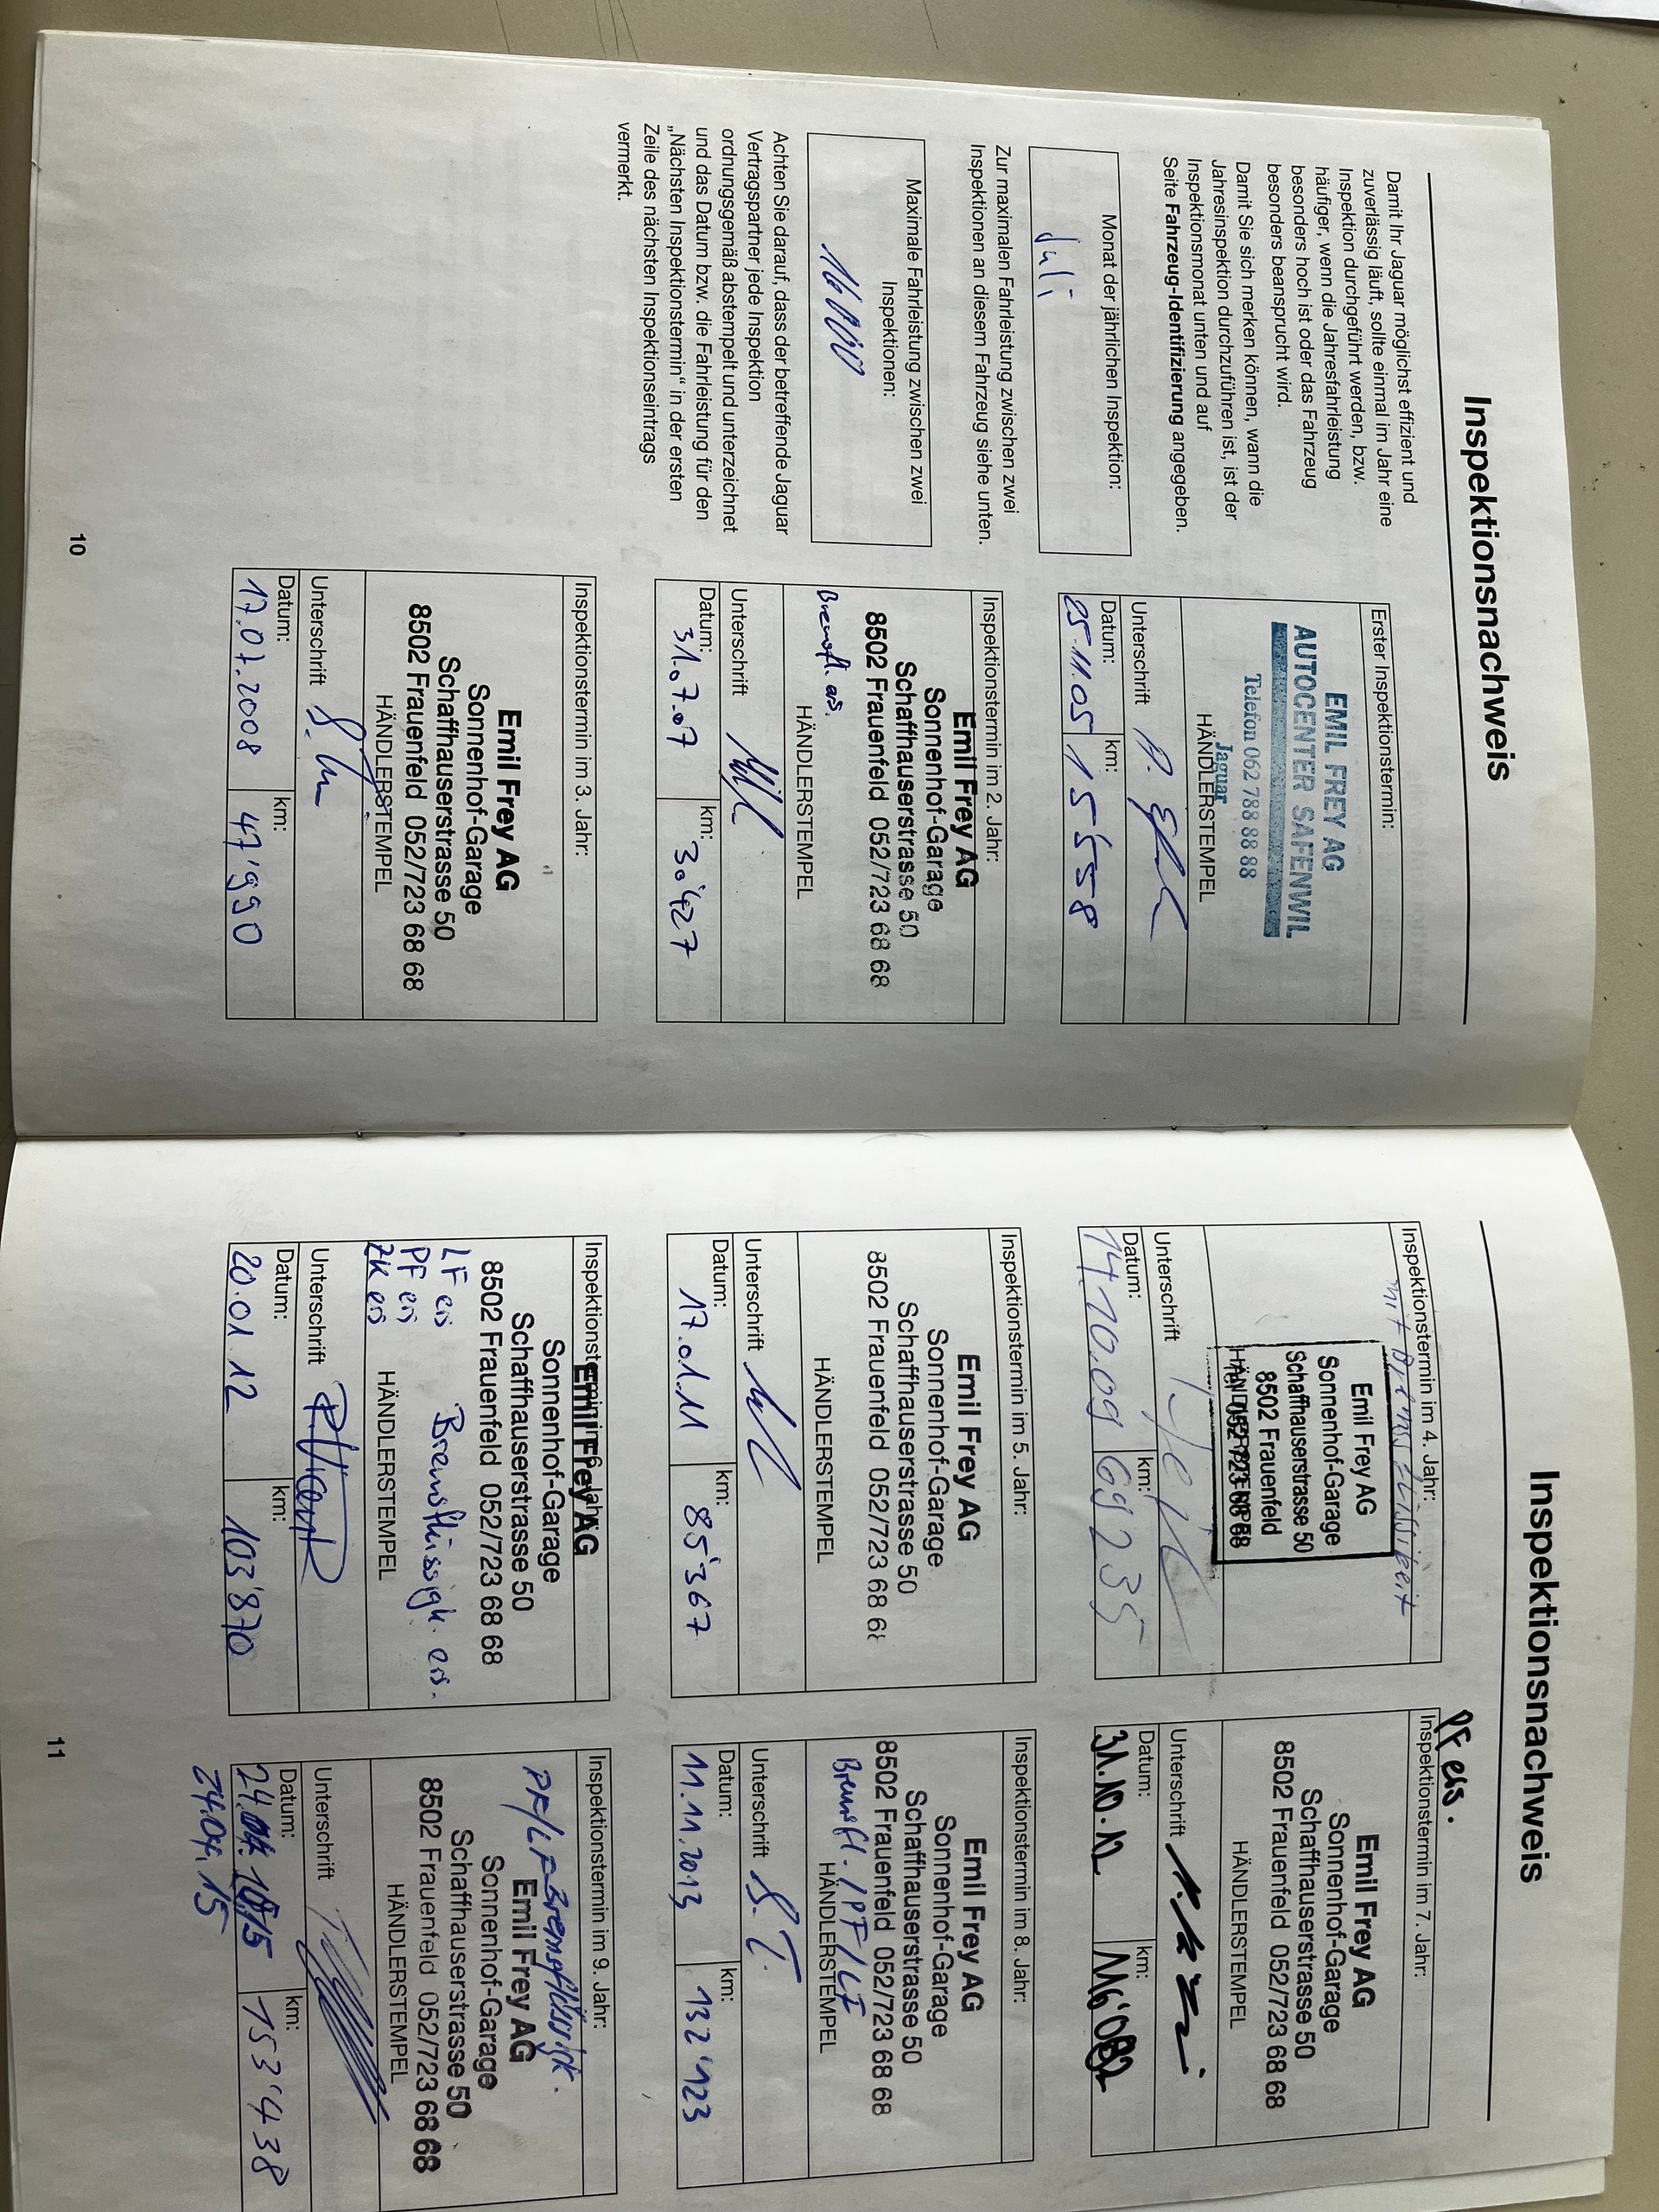 Inspektionsnachweis
Damit Ihr Jaguar möglichst effizient und
zuverlässig läuft, sollte einmal im Jahr eine
Inspektion durchgeführt werden, bzw.
häufiger, wenn die Jahresfahrleistung
besonders hoch ist oder das Fahrzeug
besonders beansprucht wird.
Damit Sie sich merken können, wann die
Jahresinspektion durchzuführen ist, ist der
Inspektionsmonat unten und auf
Seite Fahrzeug-Identifizierung angegeben.
Monat der jährlichen Inspektion:
Juli
Zur maximalen Fahrleistung zwischen zwei
Inspektionen an diesem Fahrzeug siehe unten.
Maximale Fahrleistung zwischen zwei
Inspektionen:
16000
Achten Sie darauf, dass der betreffende Jaguar
Vertragspartner jede Inspektion
ordnungsgemäß abstempelt und unterzeichnet
und das Datum bzw. die Fahrleistung für den
„Nächsten Inspektionstermin“ in der ersten
Zeile des nächsten Inspektionseintrags
vermerkt.
Erster Inspektionstermin:
EMIL FREY AG
AUTOCENTER SAFENWIL
Telefon 062 788 88 88
Jaguar
HÄNDLERSTEMPEL
Unterschrift
Datum: km:
25.11.05 15'558
Inspektionstermin im 2. Jahr:
Emil Frey AG
Sonnenhof-Garage
Schaffhauserstrasse 50
8502 Frauenfeld 052/723 68 68
Bremsfl. ers.
HÄNDLERSTEMPEL
Unterschrift
Datum: km:
31.7.07 30'427
Inspektionstermin im 3. Jahr:
Emil Frey AG
Sonnenhof-Garage
Schaffhauserstrasse 50
8502 Frauenfeld 052/723 68 68
HÄNDLERSTEMPEL
Unterschrift
Datum: km:
17.07.2008 47'990
10
Inspektionsnachweis
Inspektionstermin im 4. Jahr:
mit Bremsflüssikeit
Emil Frey AG
Sonnenhof-Garage
Schaffhauserstrasse 50
8502 Frauenfeld
HÄNDLERSTEMPEL
Tel. 052 723 68 68
Unterschrift
Datum: km:
14.10.09 69235
Inspektionstermin im 5. Jahr:
Emil Frey AG
Sonnenhof-Garage
Schaffhauserstrasse 50
8502 Frauenfeld 052/723 68 68
HÄNDLERSTEMPEL
Unterschrift
Datum: km:
17.01.11 85'367
Inspektionstermin im 6. Jahr:
Emil Frey AG
Sonnenhof-Garage
Schaffhauserstrasse 50
8502 Frauenfeld 052/723 68 68
LF ers Bremsflüssigk. ers.
PF ers
ZK ers
HÄNDLERSTEMPEL
Unterschrift
Datum: km:
20.01.12 103'870
PF ers.
Inspektionstermin im 7. Jahr:
Emil Frey AG
Sonnenhof-Garage
Schaffhauserstrasse 50
8502 Frauenfeld 052/723 68 68
HÄNDLERSTEMPEL
Unterschrift
Datum: km:
31.10.12 116'082
Inspektionstermin im 8. Jahr:
Emil Frey AG
Sonnenhof-Garage
Schaffhauserstrasse 50
8502 Frauenfeld 052/723 68 68
Bremsfl. / PF / LF
HÄNDLERSTEMPEL
Unterschrift
Datum: km:
11.11.2013 132'123
Inspektionstermin im 9. Jahr:
PF/LF Bremsflüssigk.
Emil Frey AG
Sonnenhof-Garage
Schaffhauserstrasse 50
8502 Frauenfeld 052/723 68 68
HÄNDLERSTEMPEL
Unterschrift
Datum: km:
153'438
24.04.15
11